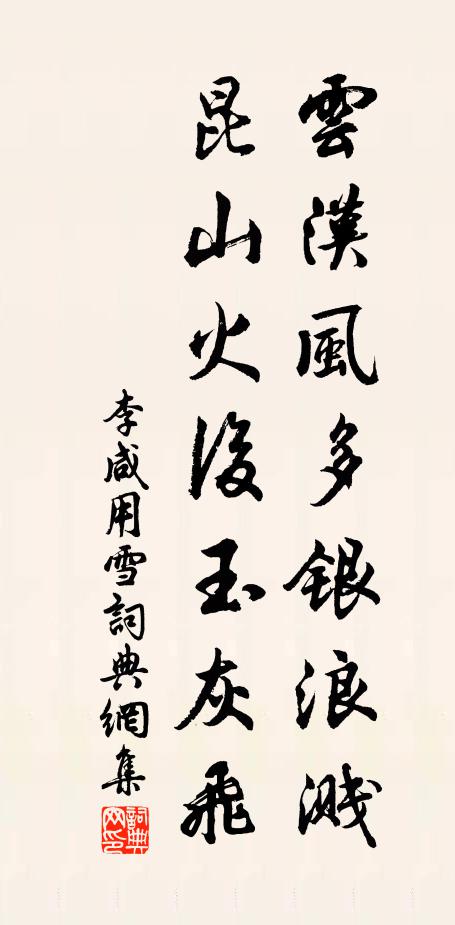 雲漢風多銀浪濺
昆山火後玉灰飛
李咸用雪詞典網集
詞典網印